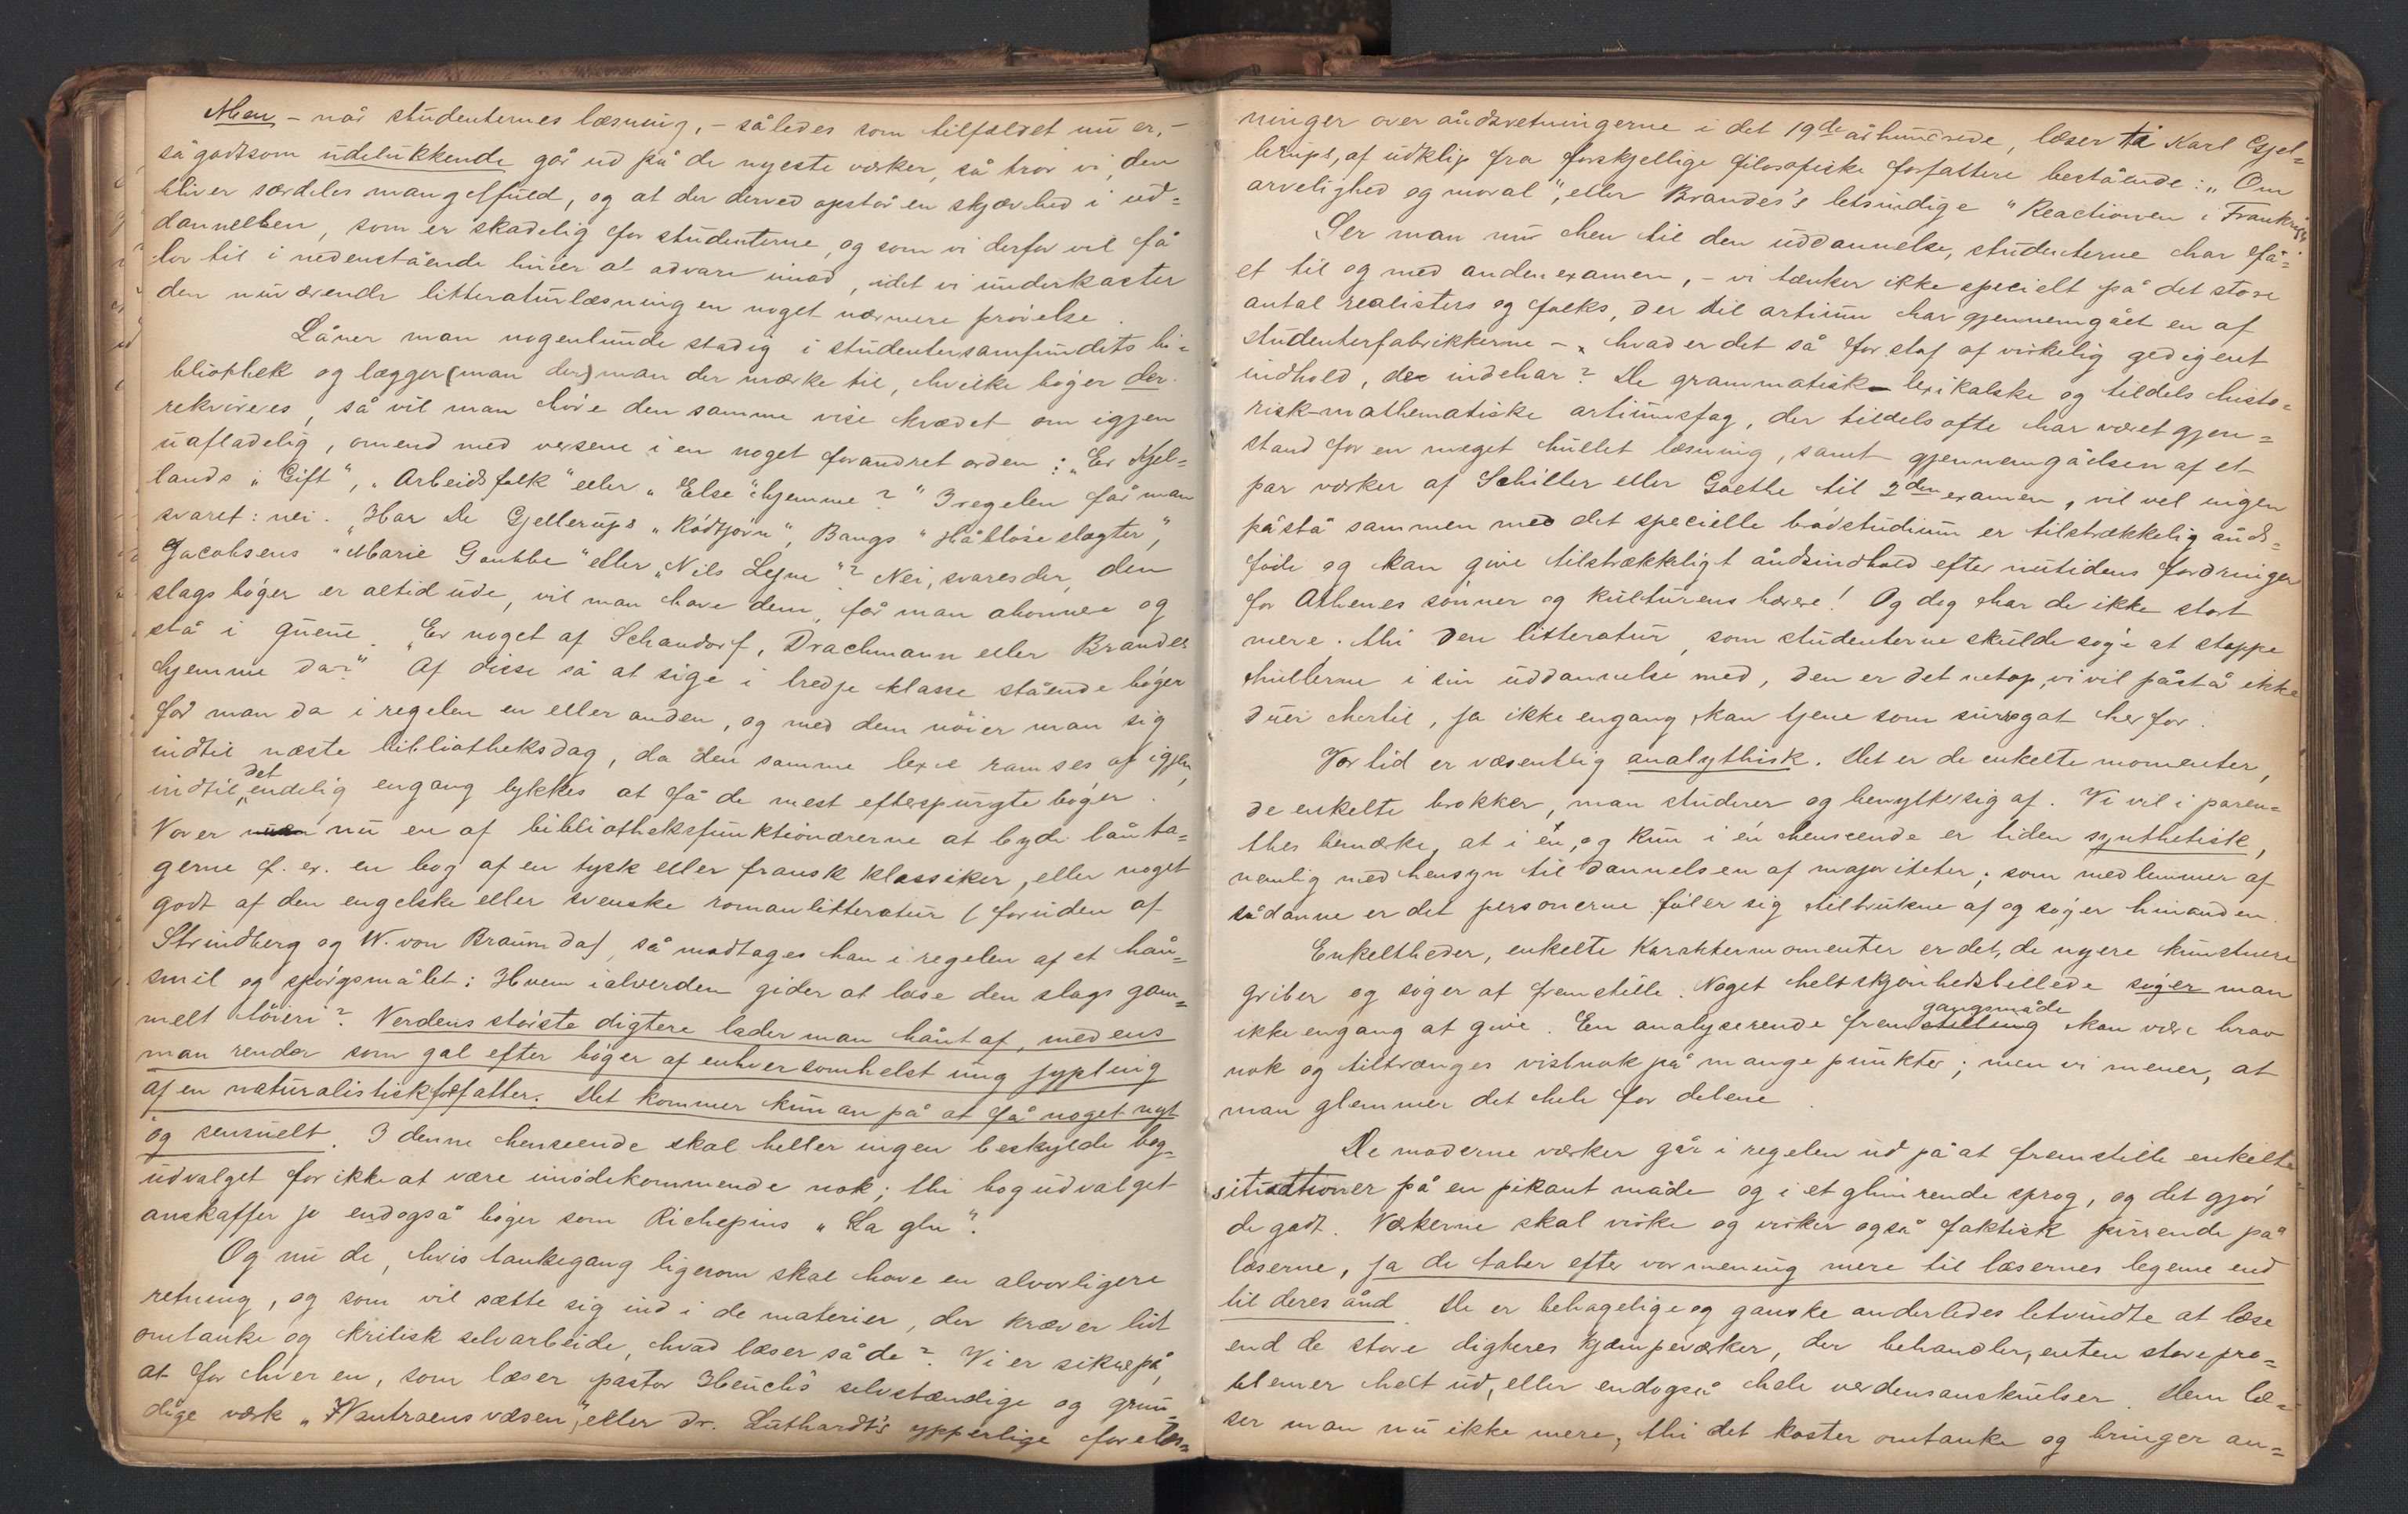 Men – når studenternes læsning, – således som tilfældet nu er, –
så godtsom udelukkende går ud på de nyeste værker, så tror vi, den
bliver særdeles mangelfuld, og at der derved opstår en skjævhed i ud=
dannelsen, som er skadelig for studenterne, og som vi derfor vil få
lov til i nedenstående linier at advare imod, idet vi underkaster
den nuværende litteraturlæsningen noget nærmere prövelse.
Låner man nogenlunde stadig i studentersamfundets bi=
bliothek og lægger (man der) man der mærke til, hvilke böger der
rekvireres, så vil man höre den samme vise kvædet om igjen
uafladelig, omend med versene i en noget forandret orden: „Er Kjel=
lands „Gift“, „Arbeidsfolk“ eller „Else“ hjemme?“ I regelen får man
svaret: nei. „Har De Gjellerups „Rödtjörn“, Bangs „Håblöse slægter“,
Jacobsens „Marie Grubbe“ eller „Nils Lyhne“? Nei, svares der, den
slags böger er altid ude, vil man have dem, får man abonnere og
stå i queue. „Er noget af Schandorf, Drachmann eller Brandes
hjemme da?“ Af disse så at sige i tredje klasse stående böger
får man da i regelen en eller anden, og med dem nöier man sig
indtil næste bibliotheksdag, da den samme lexe ramses af igjen,
indtil det endelig engang lykkes at få de mest efterspurgte böger.
Vover nu en af bibliotheksfunktionærerne at byde lånta=
gerne f. ex. en bog af en tysk eller fransk klassiker, eller noget
godt af den engelske eller svenske romanlitteratur (foruden af
Strindberg og W. von Braun da), så modtages han i regelen af et hån=
smil og spörgsmålet: Hvem i alverden gider at læse den slags gam=
melt töieri? Verdens störste digtere lader man hånt af, medens
man render som gal efter böger af enhversomhelst ung jypling
af en naturalistisk forfatter. Det kommer kun an på at få noget nyt
og sensuelt. I denne henseende skal heller ingen beskylde bog=
udvalget for ikke at være imödekommende nok; thi bogudvalget
anskaffer jo endogså böger som Richepins „La glu“.
Og nu de, hvis tankegang ligesom skal have en alvorligere
retning, og som vil sætte sig ind i de materier, der kræver lidt
omtanke og kritisk selvarbeide, hvad læser så de? Vi er sikre på,
at for hver en, som læser pastor Heuch's selvstændige og grun=
dige værk „Vantroens væsen“, eller Dr. Luthardt's ypperlige forelæs=
ninger over åndsretningerne i det 19de århundrede, læser ti Karl Gjel=
lerups, af udklip fra forskjellige filosofiske forfattere bestående: „Om
arvelighed og moral“, eller Brandes's letsindige „Reactionen i Frankrig“.
Ser man nu hen til den uddannelse, studenterne har få=
et til og med andenexamen, – vi tænker ikke specielt på det store
antal realisters og folks, der til artium har gjennemgået en af
studenterfabrikkerne –, hvad er det så for stof af virkelig gedigent
indhold, de indehar? De grammatisk-lexikalske og tildels histo=
risk-mathematiske artiumsfag, der tildels ofte har været gjen=
stand for en meget hullet læsning, samt gjennemgåelsen af et
par værker af Schiller eller Goethe til 2den examen, vil vel ingen
påstå sammen med det specielle brödstudium er tilstrækkelig ånds=
föde og kan give tilstrækkeligt åndsindhold efter nutidens fordringer
for Athenes sönner og kulturens bærere! Og dog har de ikke stort
mere. thi den litteratur, som studenterne skulde söge at stoppe
hullerne i sin uddannelse med, den er det netop, vi vil påstå ikke
duer hertil, ja ikke engang kan tjene som surrogat herfor.
Vor tid er væsentlig analythisk. Det er de enkelte momenter,
de enkelte brokker, man studerer og benytter sig af. Vi vil i paren=
thes bemærke, at i én, og kun i én henseende er tiden synthetisk,
nemlig med hensyn til dannelsen af majoriteter; som medlemmer af
sådanne er det personerne föler sig tiltrukne af og söger hinanden.
Enkeltheder, enkelte karaktermomenter er det, de nyere kunstnere
griber og söger at fremstille. Noget helt skjönhedsbillede söger man
ikke engang at give. En analyserende fremgangsmåde kan være brav
nok og tiltrænges vistnok på mange punkter; men vi mener, at
man glemmer det hele for delene.
De moderne værker går i regelen ud på at fremstille enkelte
situationer på en pikant måde og i et glimrende sprog, og det gjör
de godt. Værkerne skal virke og virker også faktisk pirrende på
læserne, ja de taler efter vor mening mere til læsernes legeme end
til deres ånd. De er behagelige og ganske anderledes letvindte at læse
end de store digteres kjæmpeværker, der behandler, enten store pro=
blemer helt ud, eller endogså hele verdensanskuelser. Dem læ=
ser man nu ikke mere, thi det koster omtanke og bringer an=